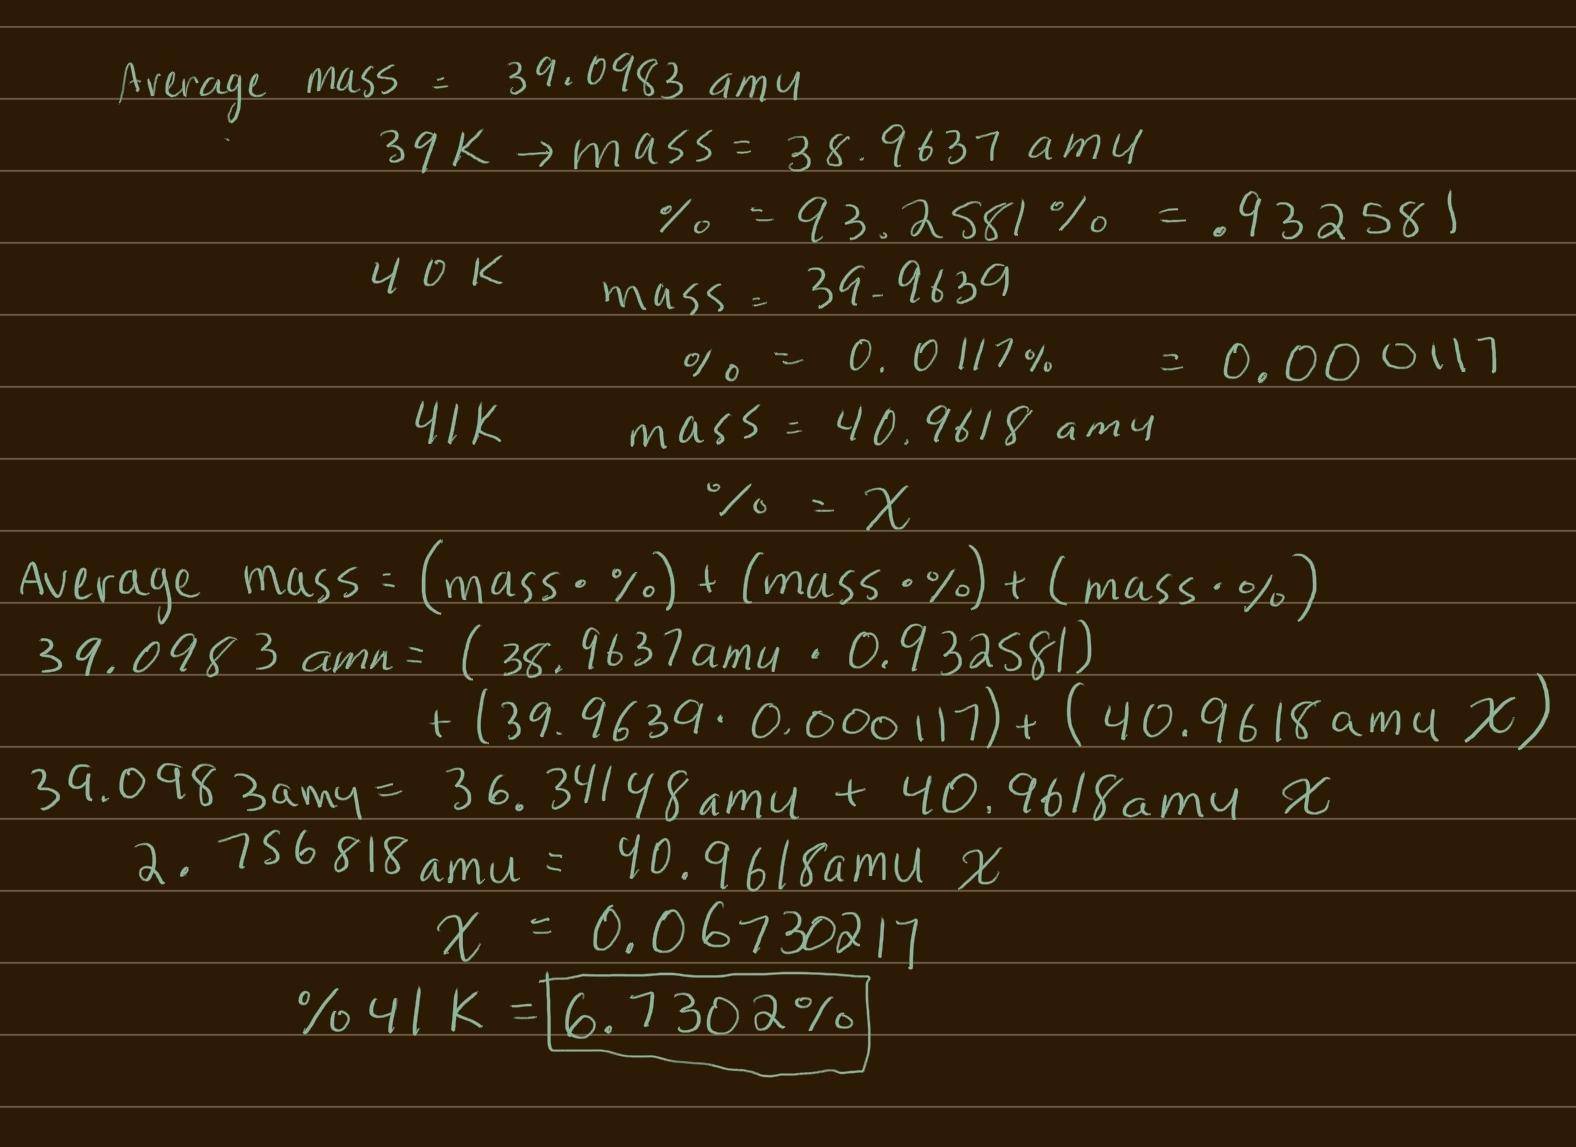 Average mass = 39.0983 amu
39K → mass = 38.9637 amu
% = 93.2581% = .932581
40K mass = 39.9639
% = 0.0117% = 0.000117
41K mass = 40.9618 amu
% = x
Average mass = (mass • %) + (mass • %) + (mass • %)
39.0983 amu = (38.9637amu • 0.932581)
+ (39.9639 • 0.000117) + (40.9618amu x)
39.0983amu = 36.34148amu + 40.9618amu x
2.756818amu = 40.9618amu x
x = 0.06730217
%41K = 6.7302%